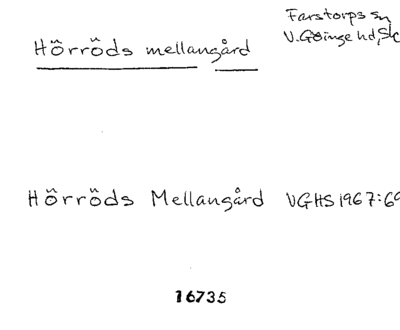 Hörröds mellangård
Farstorps sn
V. Göinge hd, Sk
Hörröds Mellangård VGHS 1967:69
16735